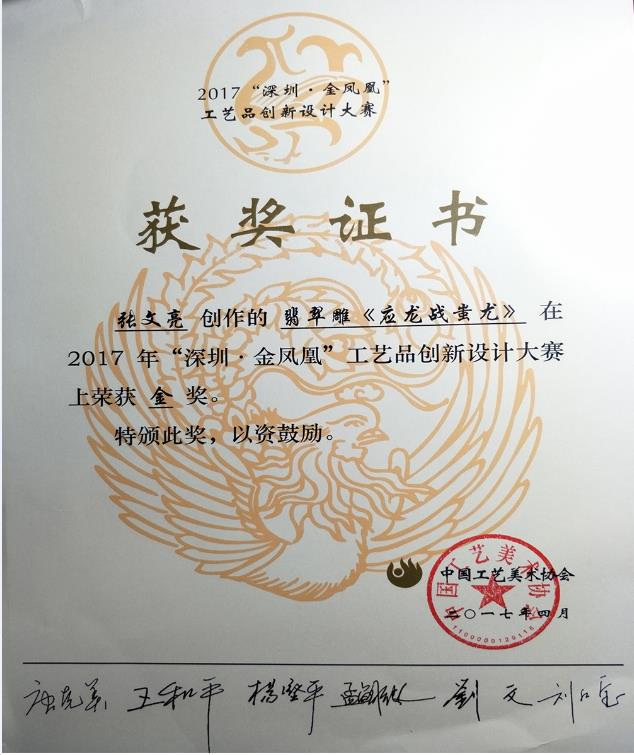 2017 “深圳·金凤凰”
工艺品创新设计大赛
获奖证书
张文亮 创作的 翡翠雕《应龙战蚩龙》 在
2017 年“深圳·金凤凰”工艺品创新设计大赛
上荣获 金 奖。
特颁此奖，以资鼓励。
中国工艺美术协会
中国工艺美术协会
二〇一七年四月
王和平 杨坚平 刘文